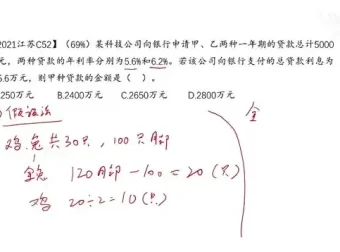 2021江苏C52】（69%）某科技公司向银行申请甲、乙两种一年期的贷款总计5000
元，两种贷款的年利率分别为5.6%和6.2%。若该公司向银行支付的总贷款利息为
5.6万元，则甲种贷款的金额是（ ）。
250万元 B.2400万元 C.2650万元 D.2800万元
假设法
全
鸡.兔共30只，100只脚
全兔 120脚-100=20(只)
鸡 20÷2=10(只)